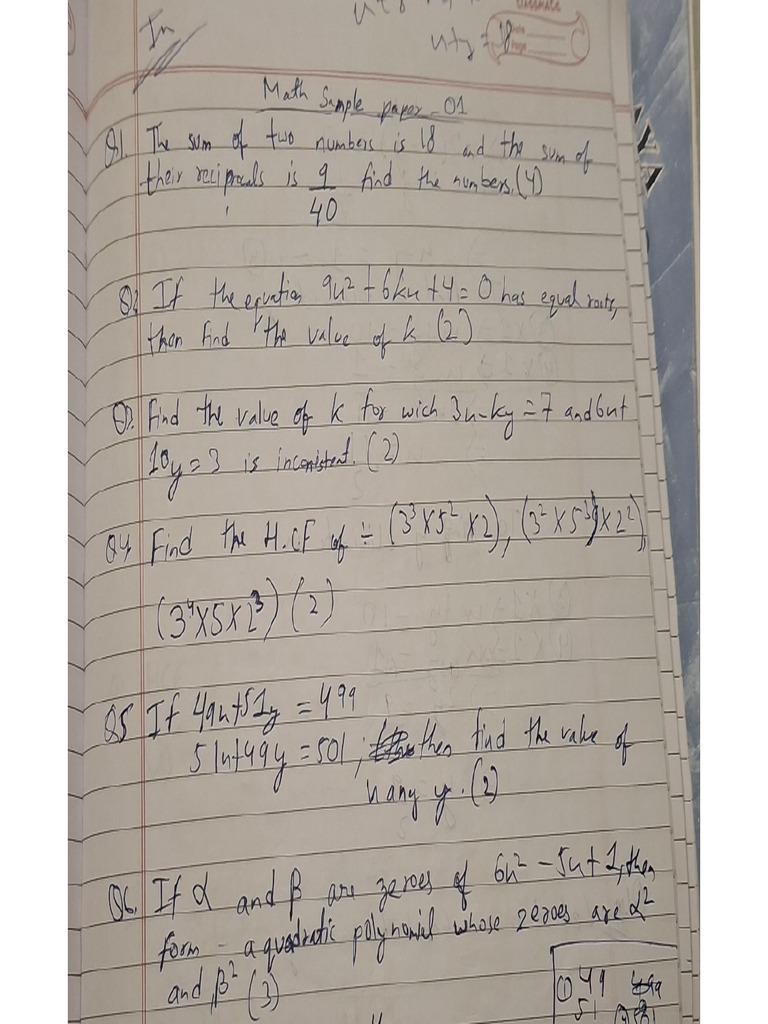 In
u+y = 18
classmate
Date
Page
Math Sample paper - 01
Q1. The sum of two numbers is 18 and the sum of
their reciprocals is 9/40 find the numbers. (4)
Q2 If the equation 9x² + 6kx + 4 = 0 has equal roots,
then find the value of k (2)
Q3. Find the value of k for wich 3x - ky = 7 and 6x+
10y = 3 is inconsistent. (2)
Q4 Find the H.C.F of ÷ (3³ X 5² X 2), (3² X 5³ X 2²),
(3⁴X5X2³) (2)
Q5 If 49x+51y = 499
51x+49y = 501, then find the value of
x any y. (2)
Q6. If α and β are zeroes of 6x² - 5x + 1, then
form - a quadratic polynomial whose zeroes are α²
and β² (3)
① 49 499
51